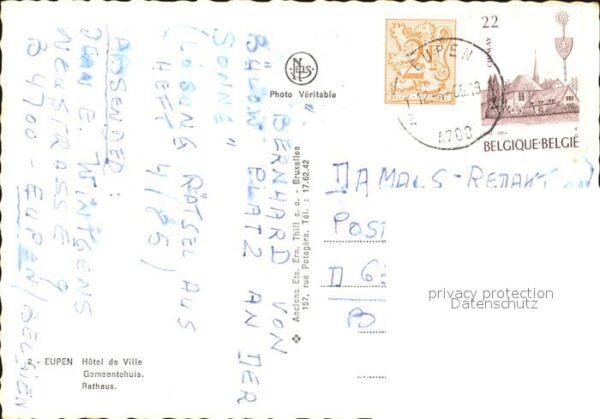 ABSENDER:
JEAN E. WINTGENS
NEUSTRASSE 9
B 4700 - EUPEN/BELGIEN
(LÖSUNG RÄTSEL AUS
HEFT 4/85)
"BERNHARD VON
BÜLOW: PLATZ AN DER
SONNE"
2. - EUPEN Hôtel de Ville
Gemeentehuis.
Rathaus.
NELS
Photo Véritable
Anciens Ets. Ern. Thill s. a. - Bruxelles
157, rue Potagère. Tél. : 17.62.42
EUPEN
4700
22
BELGIQUE·BELGIË
DAMALS-REDAKT
POST
D 6
B
privacy protection
Datenschutz